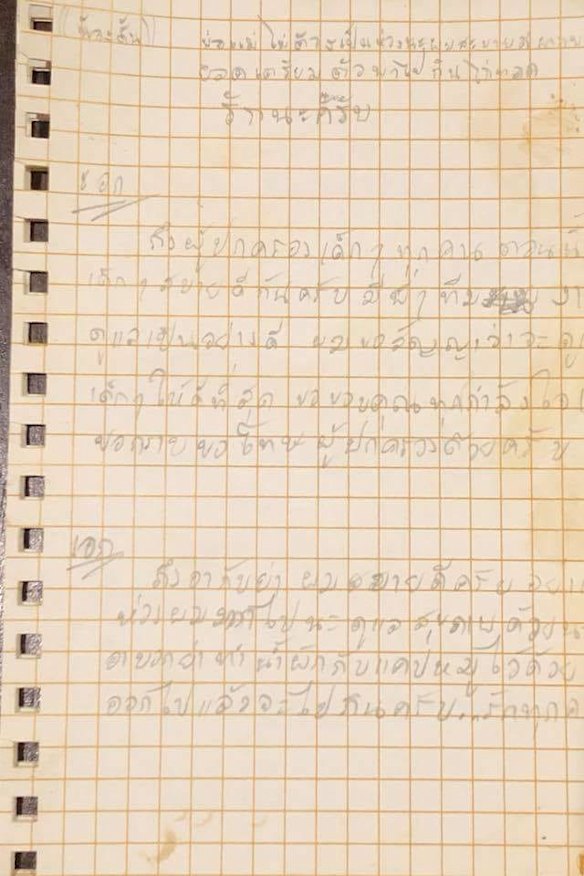 (น้องตัน) พ่อแม่ ไม่ต้องเป็นห่วงนะผมสบายดี
ยอดเตรียมตัวพาไปกินไก่ทอด
รักนะครับ
เอก
ถึงผู้ปกครองเด็กๆ ทุกคน ตอนนี้
เด็กๆ สบายดีกันครับ มีพี่ๆ ทีม
ดูแลเป็นอย่างดี ผมขอสัญญาว่าจะดูแ
เด็กๆ ให้ดีที่สุด ขอขอบคุณทุกกำลังใจ
ขอกราบขอโทษผู้ปกครองด้วยครับ
เอก
ถึงอากับย่า ผมสบายดีครับ อย่า
ห่วงผมมากไปนะ ดูแลสุขภาพด้วยน
อาบอกย่าทำน้ำผักกับแคปหมูไว้ด้วย
ออกไปแล้วจะไปกินครับ..รักทุกค